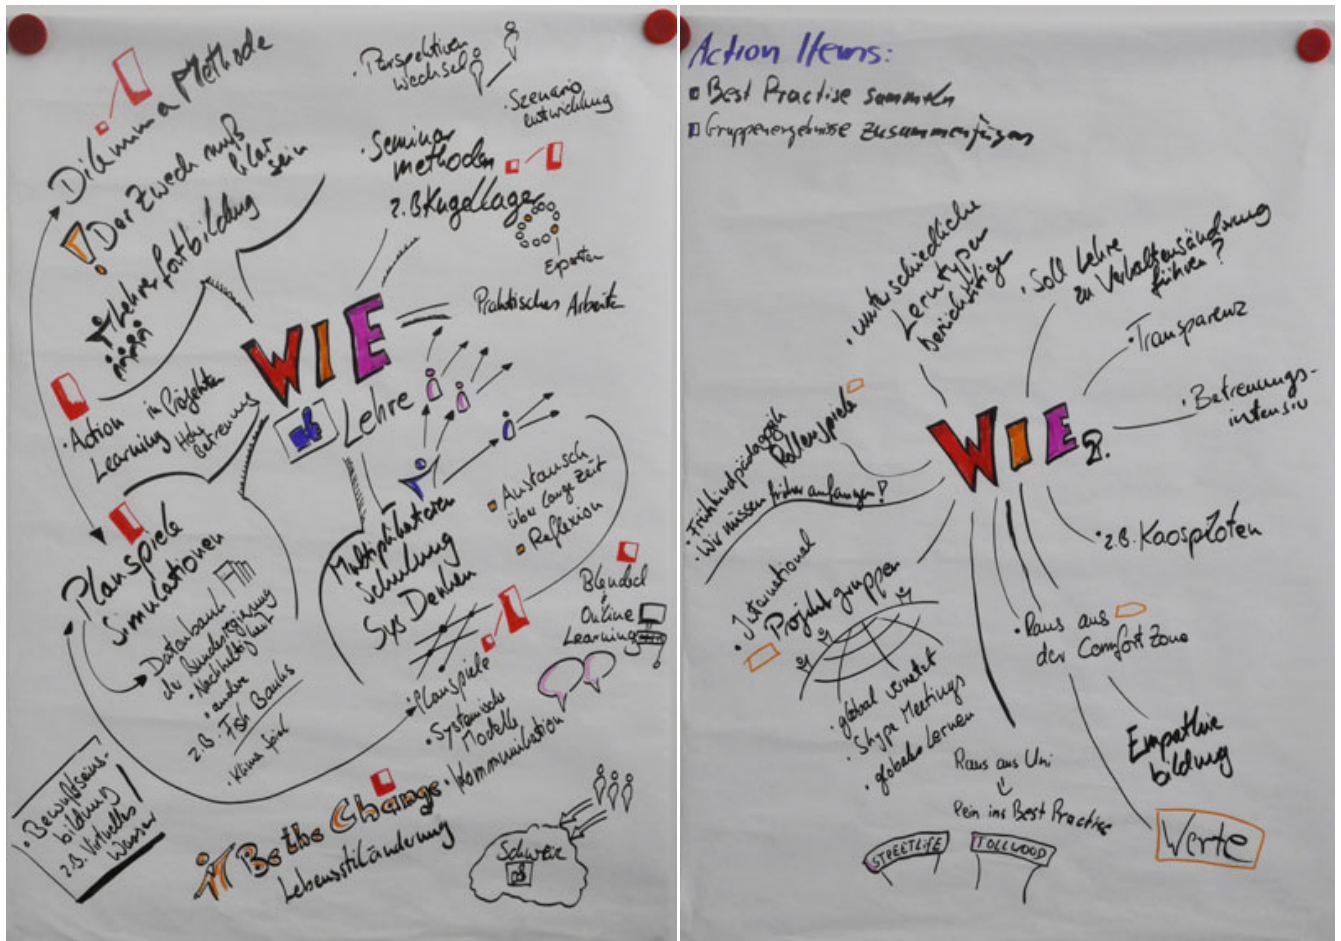 Dilemma Methode
! Der Zweck muß
klar
sein
Lehrerfortbildung
Perspektiven
wechsel
Szenario
entwicklung
Seminar
methoden
z.B Kugellager
Experten
Praktisches Arbeiten
WIE
Lehre
Action in Projekten
Learning Hohe
Betreuung
Planspiele
Simulationen
Datenbank
der Bundesregierung
Nachhaltigkeit
andere
z.B. Fish Banks
Klima Spiel
Bewußtseins-
bildung
z.B. Virtuelles
Wasser
Multiplikatoren
Schulung
Sys Denken
Austausch
über lange Zeit
Reflexion
Blended
+
Online
Learning
Planspiele
Systemische
Modelle
Kommunikation
Be the Change
Lebensstiländerung
Schweiz
Action Items:
Best Practise sammeln
Gruppenergebnisse zusammenfügen
unterschiedliche
Lerntypen
berücksichtigen
Soll Lehre
zu Verhaltensänderung
führen?
Transparenz
Betreuungs-
intensiv
WIE?
Rollenspiele
Frühkindpädagogik
Wir müssen früher anfangen!
z.B. Kaospiloten
International
Projektgruppen
global vernetzt
Skype Meetings
globales Lernen
Raus aus
der Comfort Zone
Empathie
bildung
Werte
Raus aus Uni
rein ins Best Practise
STREETLIFE
TOLLWOOD